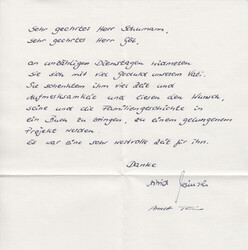 Sehr geehrter Herr Schumann,
Sehr geehrter Herr Götz,
an unzähligen Dienstagen widmeten
Sie sich mit viel Geduld unserem Vati.
Sie schenkten ihm viel Zeit und
Aufmerksamkeit und liesen den Wunsch,
seine und die Familiengeschichte in
ein Buch zu bringen, zu einem gelungenen
Projekt werden.
Es war eine sehr wertvolle Zeit für ihn.
Danke
Astrid